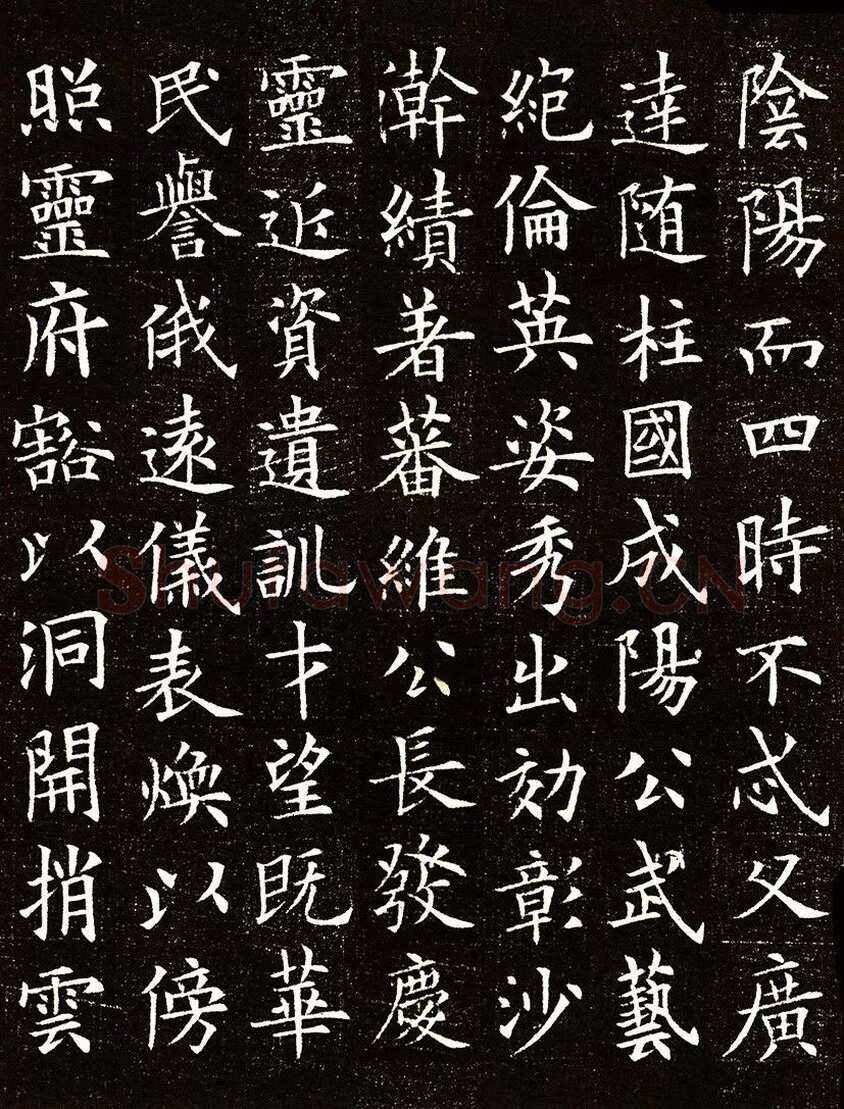 陰陽而四時不忒父廣
達随柱國成陽公武藝
絶倫英姿秀出効彰沙
澣績著蕃維公長發慶
靈近資遺訓才望既華
民譽俄遠儀表煥以傍
照靈府豁以洞開捎雲
Shufawang.CN